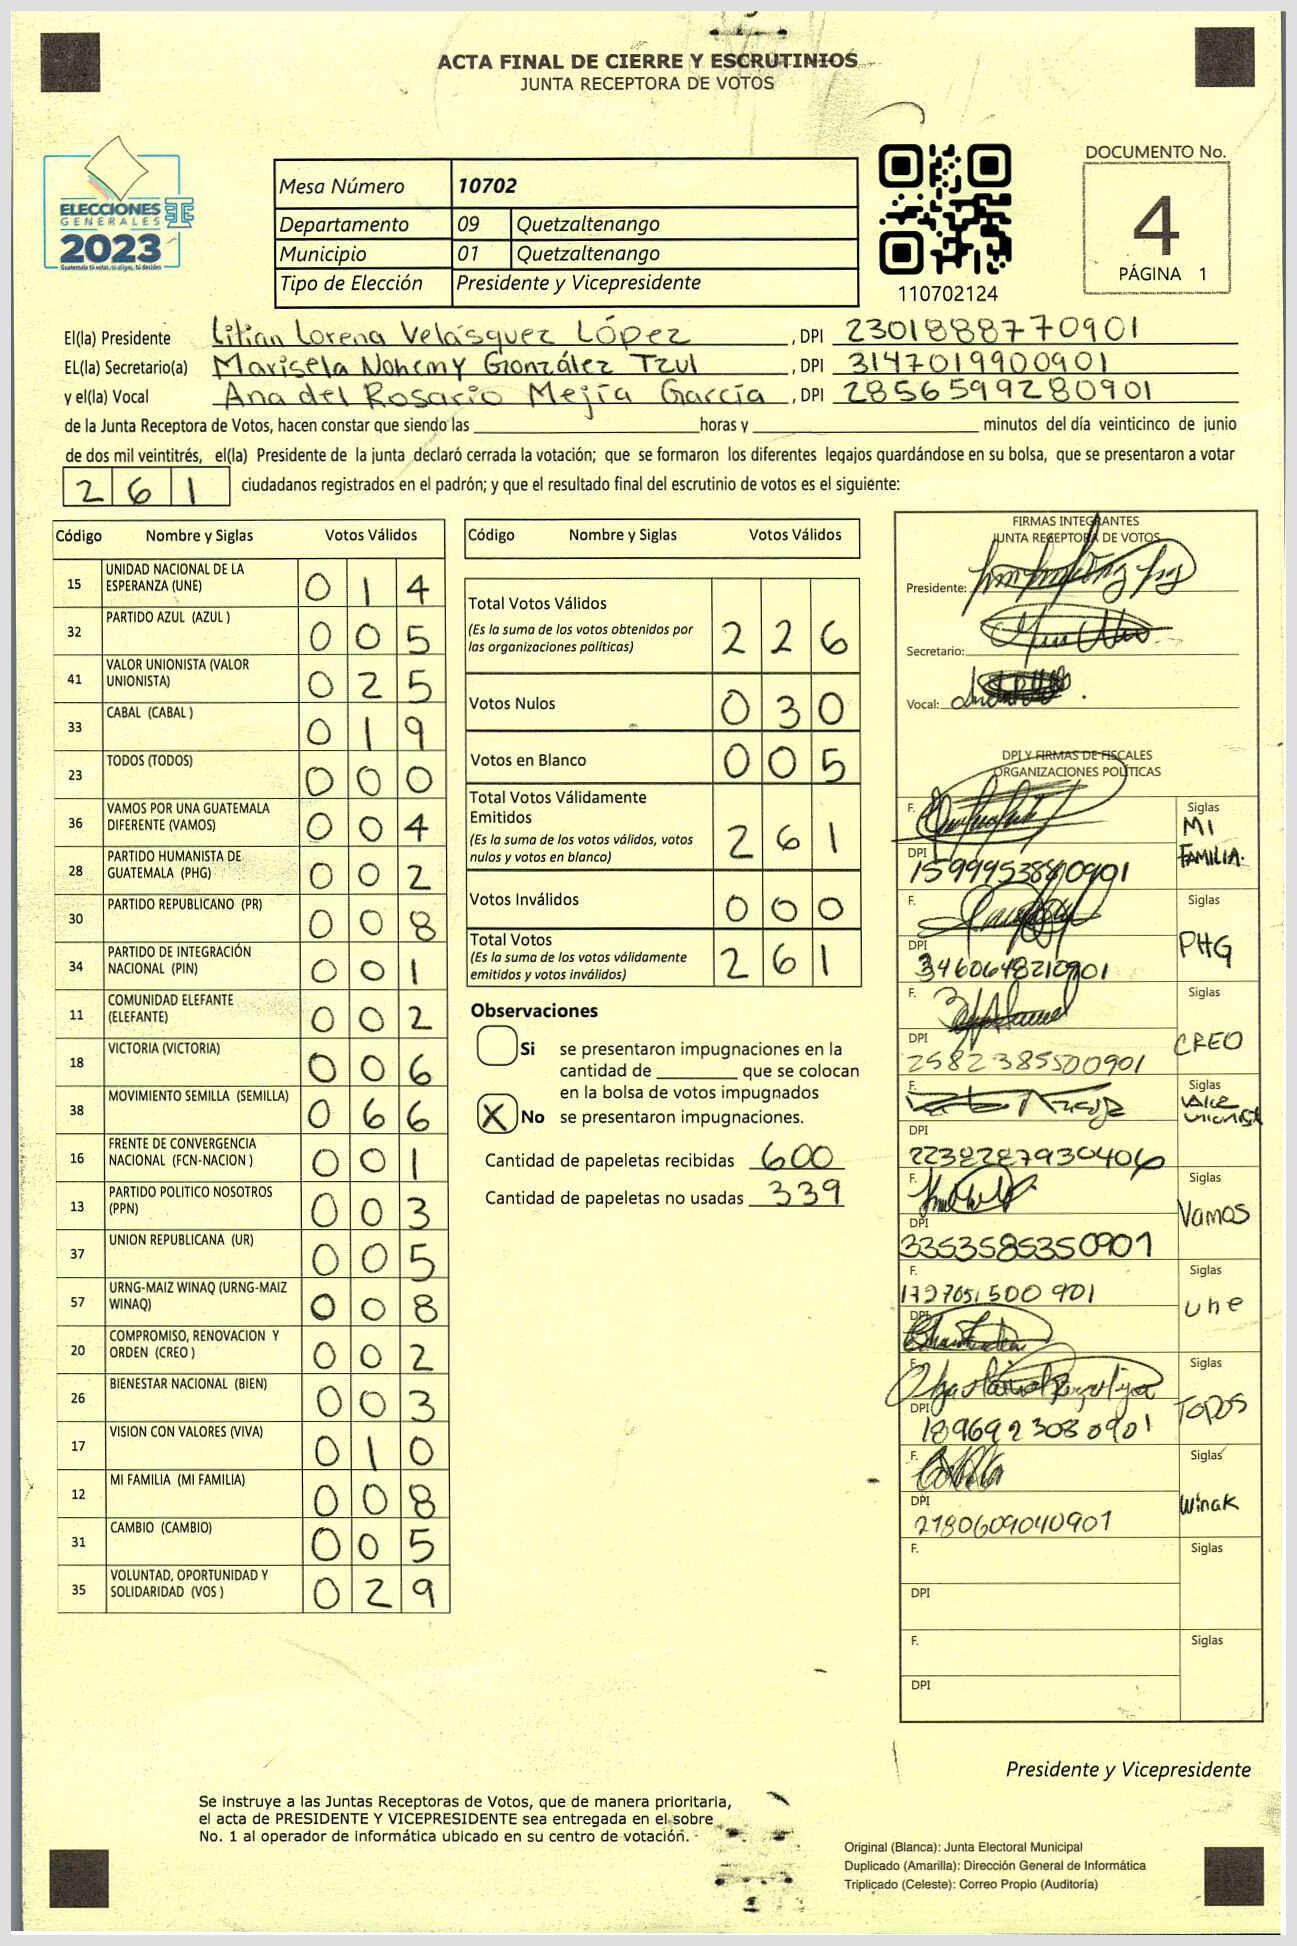 ACTA FINAL DE CIERRE Y ESCRUTINIOS
JUNTA RECEPTORA DE VOTOS
ELECCIONES
GENERALES
2023
Guatemala tú votas, tú eliges, tú decides
Mesa Número 10702
Departamento 09 Quetzaltenango
Municipio 01 Quetzaltenango
Tipo de Elección Presidente y Vicepresidente
110702124
DOCUMENTO No.
4
PÁGINA 1
El(la) Presidente Lilian Lorena Velásquez López, DPI 2301888770901
EL(la) Secretario(a) Marisela Nohemy González Tzul, DPI 3147019900901
y el(la) Vocal Ana del Rosario Mejía García, DPI 2856599280901
de la Junta Receptora de Votos, hacen constar que siendo las horas y minutos del día veinticinco de junio
de dos mil veintitrés, el(la) Presidente de la junta declaró cerrada la votación; que se formaron los diferentes legajos guardándose en su bolsa, que se presentaron a votar
261 ciudadanos registrados en el padrón; y que el resultado final del escrutinio de votos es el siguiente:
Código Nombre y Siglas Votos Válidos
15 UNIDAD NACIONAL DE LA ESPERANZA (UNE) 014
32 PARTIDO AZUL (AZUL ) 005
41 VALOR UNIONISTA (VALOR UNIONISTA) 025
33 CABAL (CABAL ) 019
23 TODOS (TODOS) 000
36 VAMOS POR UNA GUATEMALA DIFERENTE (VAMOS) 004
28 PARTIDO HUMANISTA DE GUATEMALA (PHG) 002
30 PARTIDO REPUBLICANO (PR) 008
34 PARTIDO DE INTEGRACIÓN NACIONAL (PIN) 001
11 COMUNIDAD ELEFANTE (ELEFANTE) 002
18 VICTORIA (VICTORIA) 006
38 MOVIMIENTO SEMILLA (SEMILLA) 066
16 FRENTE DE CONVERGENCIA NACIONAL (FCN-NACION ) 001
13 PARTIDO POLITICO NOSOTROS (PPN) 003
37 UNION REPUBLICANA (UR) 005
57 URNG-MAIZ WINAQ (URNG-MAIZ WINAQ) 008
20 COMPROMISO, RENOVACION Y ORDEN (CREO ) 002
26 BIENESTAR NACIONAL (BIEN) 003
17 VISION CON VALORES (VIVA) 010
12 MI FAMILIA (MI FAMILIA) 008
31 CAMBIO (CAMBIO) 005
35 VOLUNTAD, OPORTUNIDAD Y SOLIDARIDAD (VOS ) 029
Código Nombre y Siglas Votos Válidos
Total Votos Válidos 226
(Es la suma de los votos obtenidos por
las organizaciones politicas)
Votos Nulos 030
Votos en Blanco 005
Total Votos Válidamente
Emitidos 261
(Es la suma de los votos válidos, votos
nulos y votos en blanco)
Votos Inválidos 000
Total Votos 261
(Es la suma de los votos válidamente
emitidos y votos inválidos)
Observaciones
Si se presentaron impugnaciones en la
cantidad de que se colocan
en la bolsa de votos impugnados
X No se presentaron impugnaciones.
Cantidad de papeletas recibidas 600
Cantidad de papeletas no usadas 339
FIRMAS INTEGRANTES
JUNTA RECEPTORA DE VOTOS
Presidente:
Secretario:
Vocal:
DPI Y FIRMAS DE FISCALES
ORGANIZACIONES POLÍTICAS
F. Siglas
MI
FAMILIA.
DPI 1599953840901
F. Siglas
PHG
DPI 3460648210901
F. Siglas
CREO
DPI 2582385500901
F. Siglas
DPI 2238287930406
F. Siglas
Vamos
DPI 3353585350901
F. Siglas
1727051500901
une
DPI
F. Siglas
TODOS
DPI 1896923080901
F. Siglas
Winak
DPI 2780609040901
F. Siglas
DPI
F. Siglas
DPI
Presidente y Vicepresidente
Se instruye a las Juntas Receptoras de Votos, que de manera prioritaria,
el acta de PRESIDENTE Y VICEPRESIDENTE sea entregada en el sobre
No. 1 al operador de informática ubicado en su centro de votación.
Original (Blanca): Junta Electoral Municipal
Duplicado (Amarilla): Dirección General de Informática
Triplicado (Celeste): Correo Propio (Auditoría)